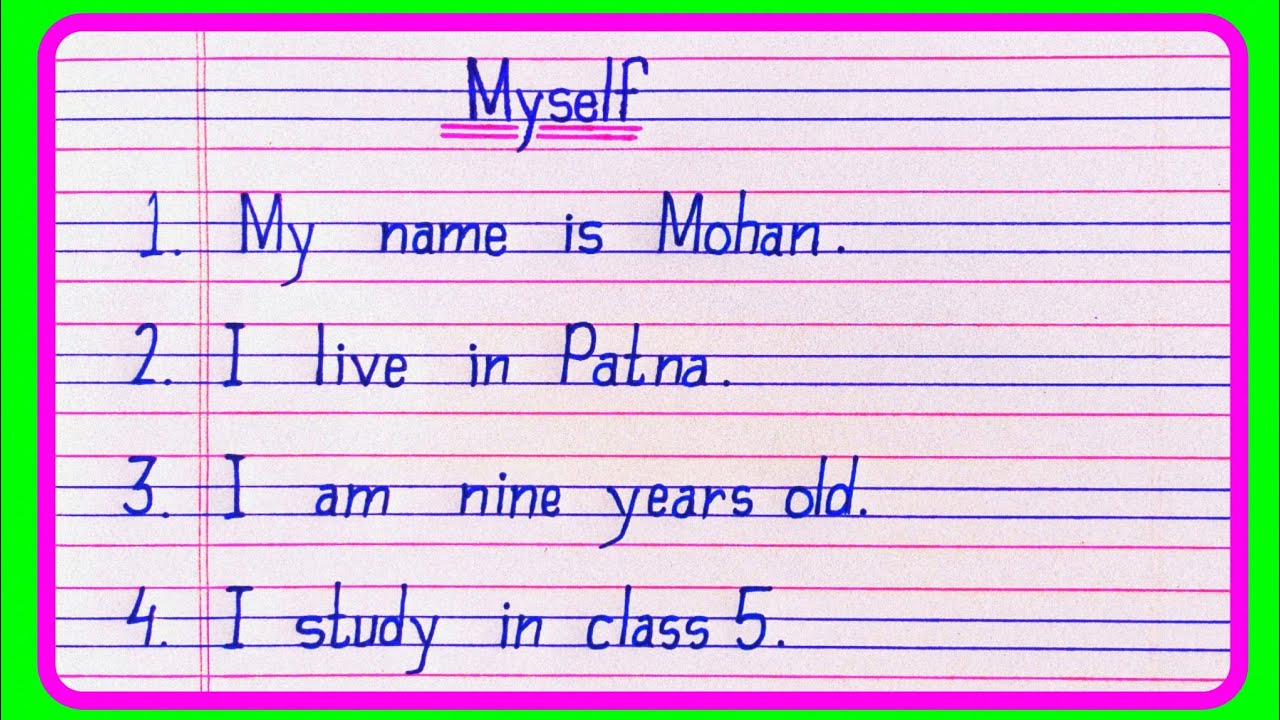 Myself
1. My name is Mohan.
2. I live in Patna.
3. I am nine years old.
4. I study in class 5.